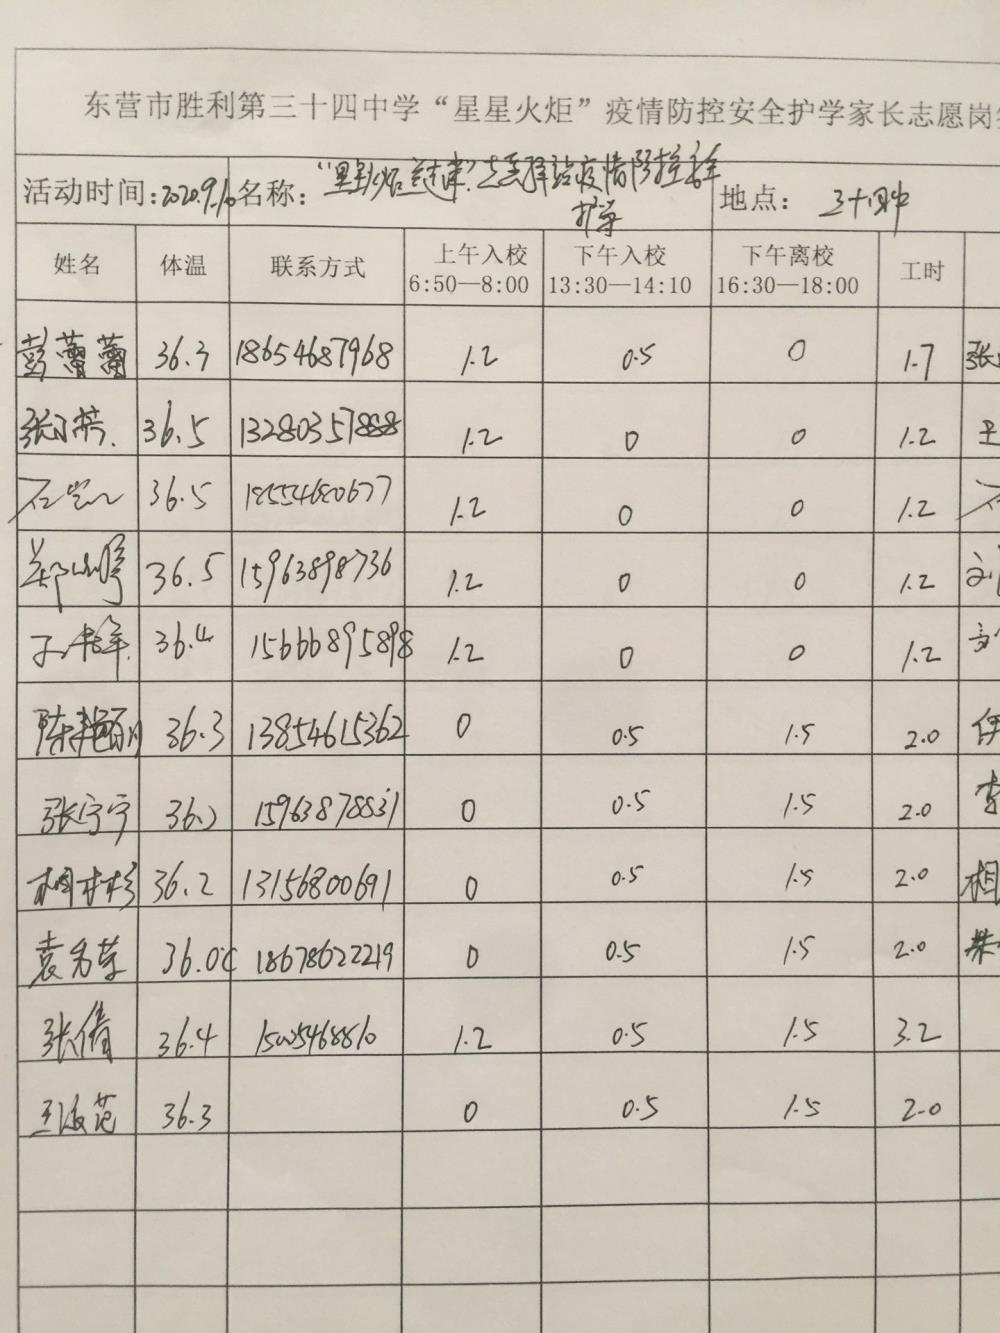 东营市胜利第三十四中学“星星火炬”疫情防控安全护学家长志愿岗
活动时间：2020.9.10 名称： 疫情防控 地点： 三十四中
护学
姓名 体温 联系方式 上午入校 6:50—8:00 下午入校 13:30—14:10 下午离校 16:30—18:00 工时
彭蕾蕾 36.3 18654687968 1.2 0.5 0 1.7 张
36.5 13280357888 1.2 0 0 1.2 王
36.5 18554680677 1.2 0 0 1.2
郑 36.5 15963898736 1.2 0 0 1.2 刘
36.4 15666895898 1.2 0 0 1.2
陈艳丽 36.3 13854615362 0 0.5 1.5 2.0 伊
张宁宁 36.2 15963878831 0 0.5 1.5 2.0 李
相彬彬 36.2 13156800691 0 0.5 1.5 2.0 相
袁秀荣 36.0℃ 18678622219 0 0.5 1.5 2.0
张倩 36.4 1.2 0.5 1.5 3.2
王淑范 36.3 0 0.5 1.5 2.0